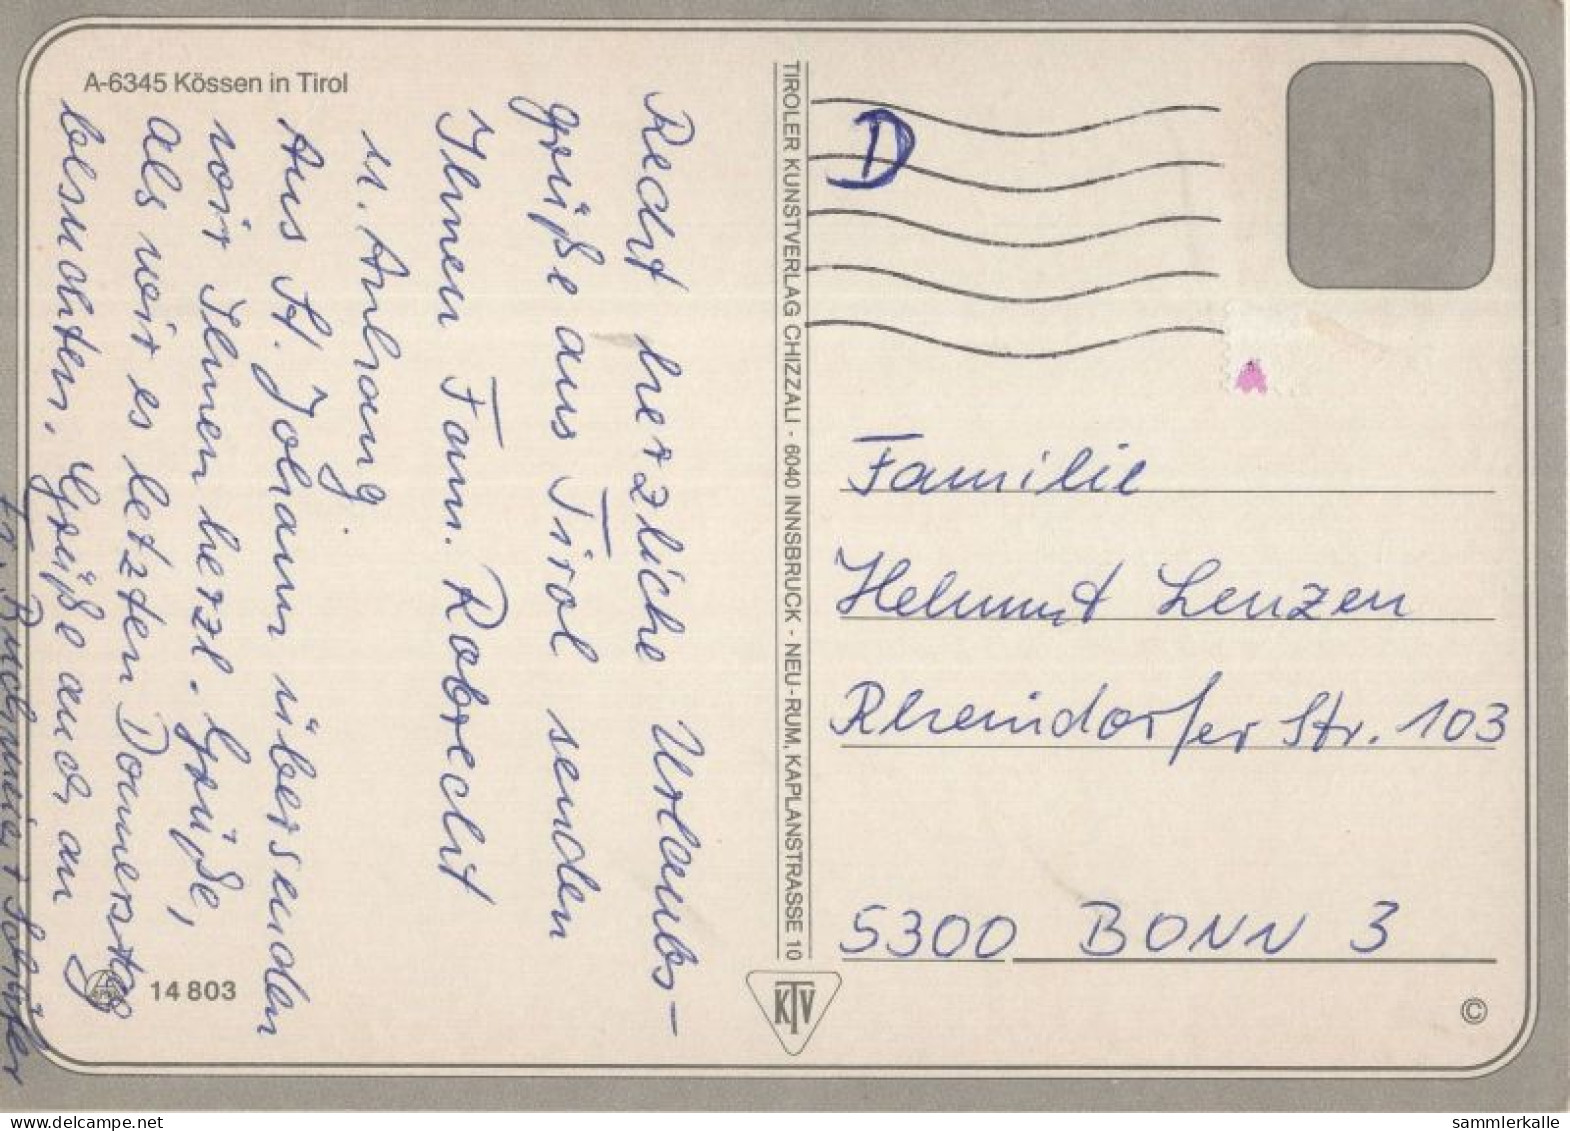 A-6345 Kössen in Tirol
Recht herzliche Urlaubs-
grüße aus Tirol senden
Ihnen Fam. Robrecht
u. Anhang.
Aus St. Johann übersenden
wir Ihnen herzl. Grüße,
als wir es letzten Donnerstag
besuchten. Grüße auch an
Fr.
14 803
TIROLER KUNSTVERLAG CHIZZALI · 6040 INNSBRUCK - NEU-RUM, KAPLANSTRASSE 10
KTV
D
Familie
Helmut Lenzen
Rheindorfer Str. 103
5300 BONN 3
©
www.delcampe.net
sammlerkalle